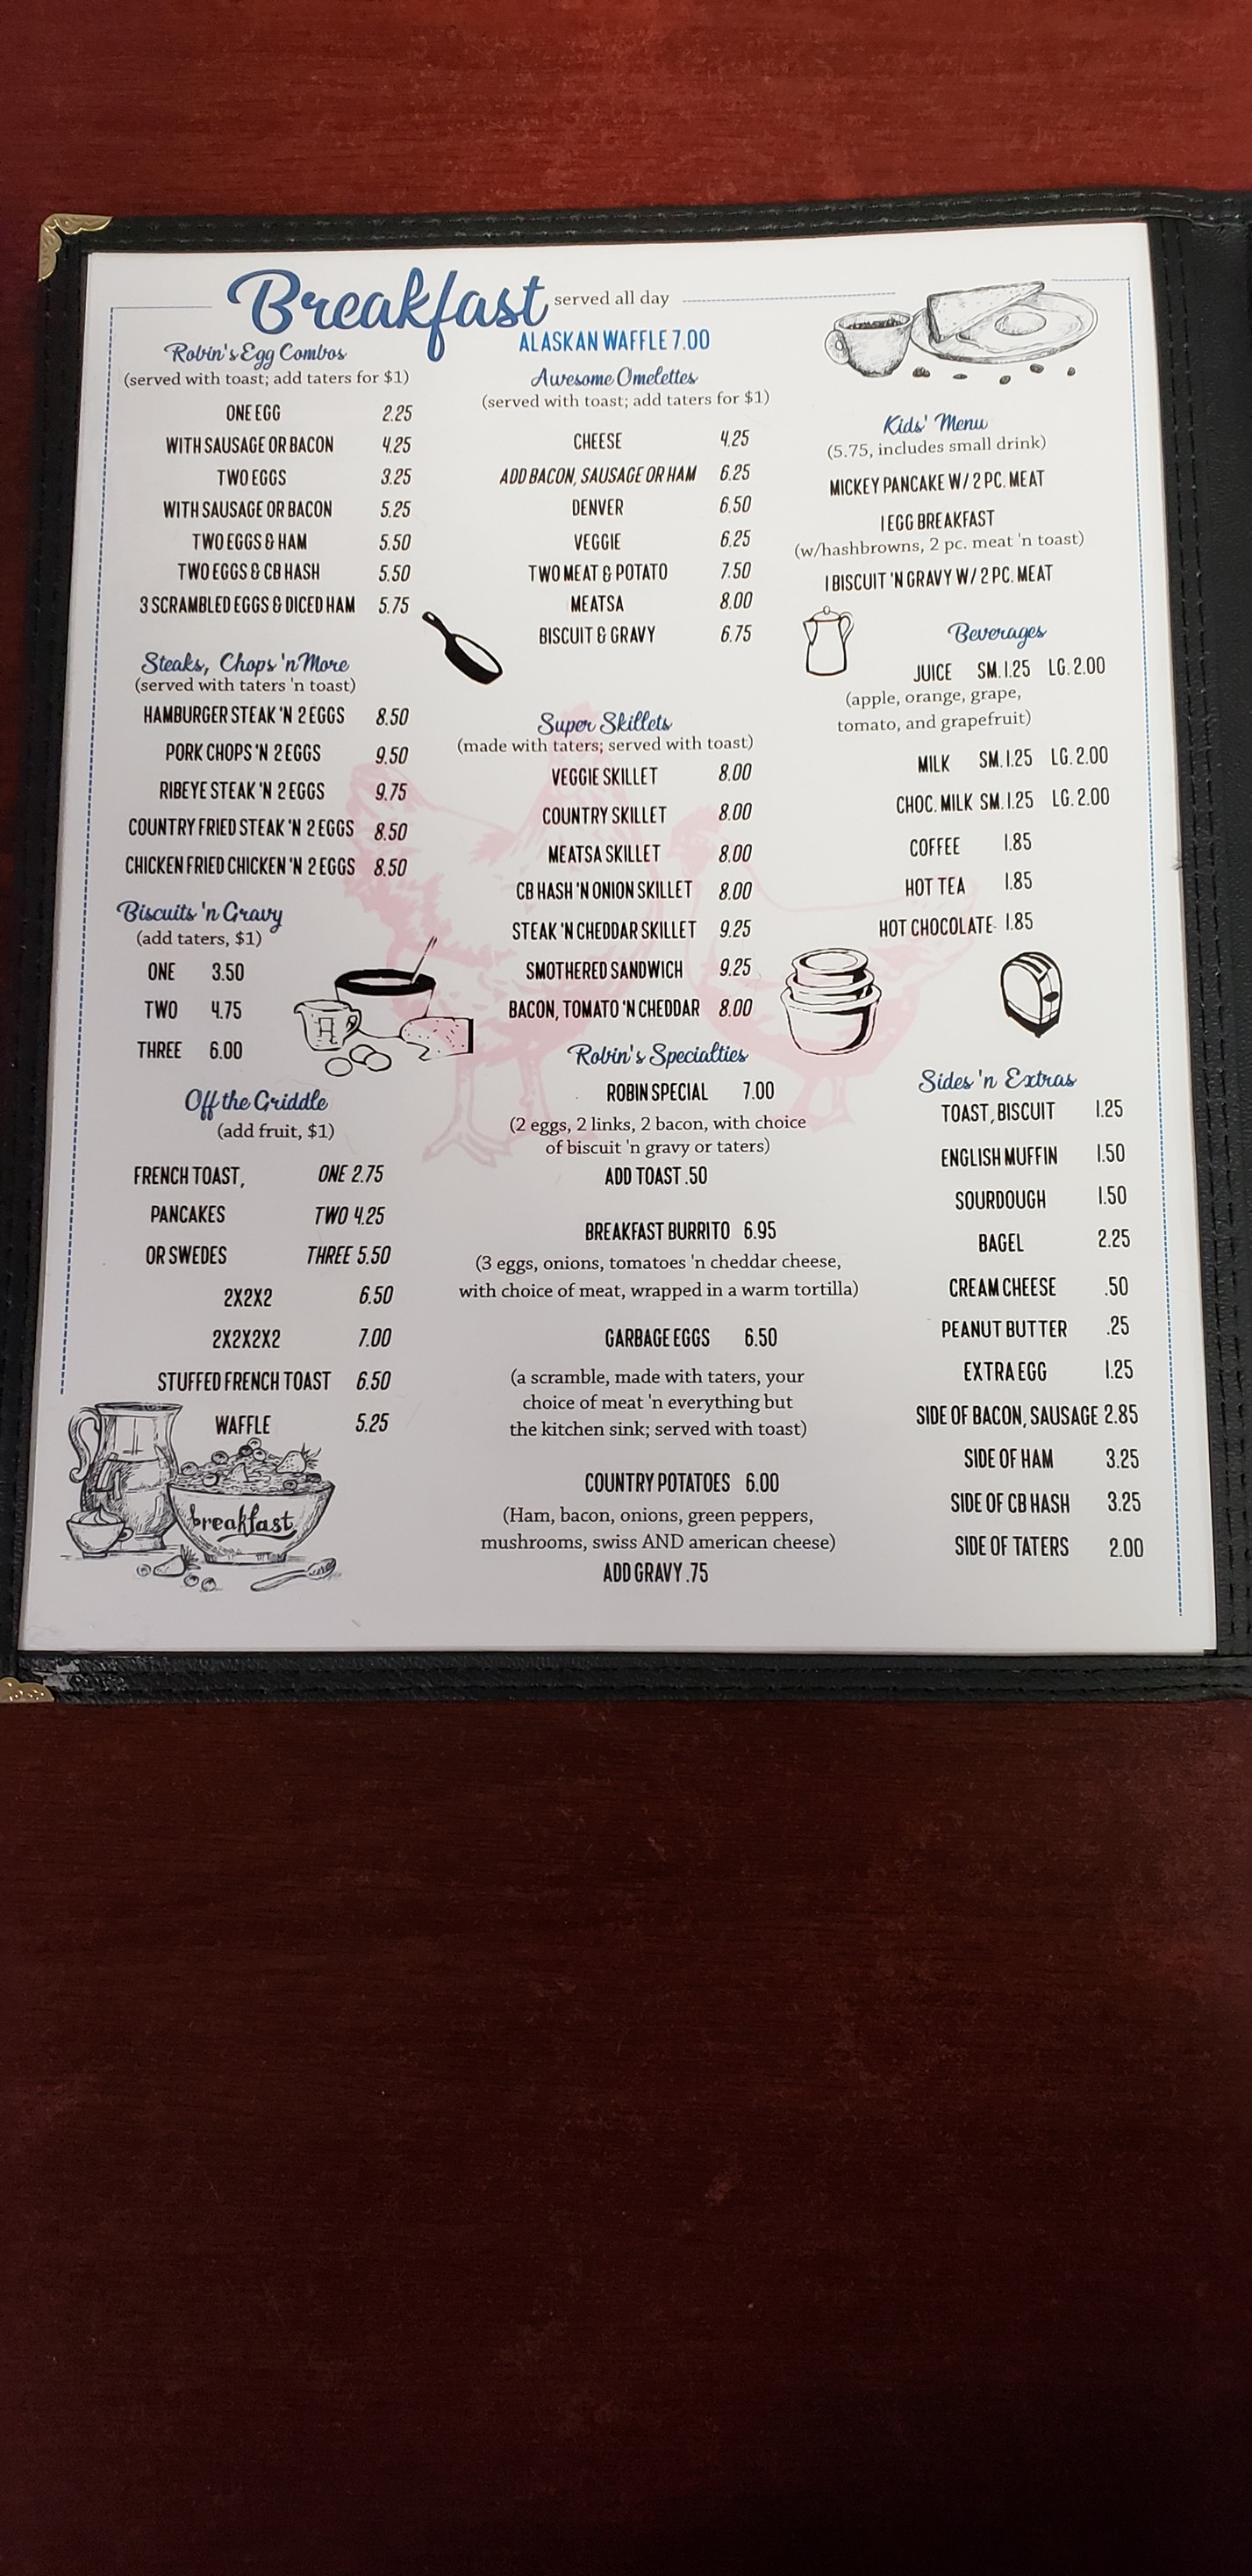 Breakfast served all day
ALASKAN WAFFLE 7.00
Robin's Egg Combos
(served with toast; add taters for $1)
ONE EGG 2.25
WITH SAUSAGE OR BACON 4.25
TWO EGGS 3.25
WITH SAUSAGE OR BACON 5.25
TWO EGGS & HAM 5.50
TWO EGGS & CB HASH 5.50
3 SCRAMBLED EGGS & DICED HAM 5.75
Steaks, Chops 'n More
(served with taters 'n toast)
HAMBURGER STEAK 'N 2 EGGS 8.50
PORK CHOPS 'N 2 EGGS 9.50
RIBEYE STEAK 'N 2 EGGS 9.75
COUNTRY FRIED STEAK 'N 2 EGGS 8.50
CHICKEN FRIED CHICKEN 'N 2 EGGS 8.50
Biscuits 'n Gravy
(add taters, $1)
ONE 3.50
TWO 4.75
THREE 6.00
Off the Griddle
(add fruit, $1)
FRENCH TOAST, ONE 2.75
PANCAKES TWO 4.25
OR SWEDES THREE 5.50
2X2X2 6.50
2X2X2X2 7.00
STUFFED FRENCH TOAST 6.50
WAFFLE 5.25
breakfast
Awesome Omelettes
(served with toast; add taters for $1)
CHEESE 4.25
ADD BACON, SAUSAGE OR HAM 6.25
DENVER 6.50
VEGGIE 6.25
TWO MEAT & POTATO 7.50
MEATSA 8.00
BISCUIT & GRAVY 6.75
Super Skillets
(made with taters; served with toast)
VEGGIE SKILLET 8.00
COUNTRY SKILLET 8.00
MEATSA SKILLET 8.00
CB HASH 'N ONION SKILLET 8.00
STEAK 'N CHEDDAR SKILLET 9.25
SMOTHERED SANDWICH 9.25
BACON, TOMATO 'N CHEDDAR 8.00
Robin's Specialties
ROBIN SPECIAL 7.00
(2 eggs, 2 links, 2 bacon, with choice
of biscuit 'n gravy or taters)
ADD TOAST .50
BREAKFAST BURRITO 6.95
(3 eggs, onions, tomatoes 'n cheddar cheese,
with choice of meat, wrapped in a warm tortilla)
GARBAGE EGGS 6.50
(a scramble, made with taters, your
choice of meat 'n everything but
the kitchen sink; served with toast)
COUNTRY POTATOES 6.00
(Ham, bacon, onions, green peppers,
mushrooms, swiss AND american cheese)
ADD GRAVY .75
Kids' Menu
(5.75, includes small drink)
MICKEY PANCAKE W/ 2 PC. MEAT
1 EGG BREAKFAST
(w/hashbrowns, 2 pc. meat 'n toast)
1 BISCUIT 'N GRAVY W/ 2 PC. MEAT
Beverages
JUICE SM. 1.25 LG. 2.00
(apple, orange, grape,
tomato, and grapefruit)
MILK SM. 1.25 LG. 2.00
CHOC. MILK SM. 1.25 LG. 2.00
COFFEE 1.85
HOT TEA 1.85
HOT CHOCOLATE 1.85
Sides 'n Extras
TOAST, BISCUIT 1.25
ENGLISH MUFFIN 1.50
SOURDOUGH 1.50
BAGEL 2.25
CREAM CHEESE .50
PEANUT BUTTER .25
EXTRA EGG 1.25
SIDE OF BACON, SAUSAGE 2.85
SIDE OF HAM 3.25
SIDE OF CB HASH 3.25
SIDE OF TATERS 2.00